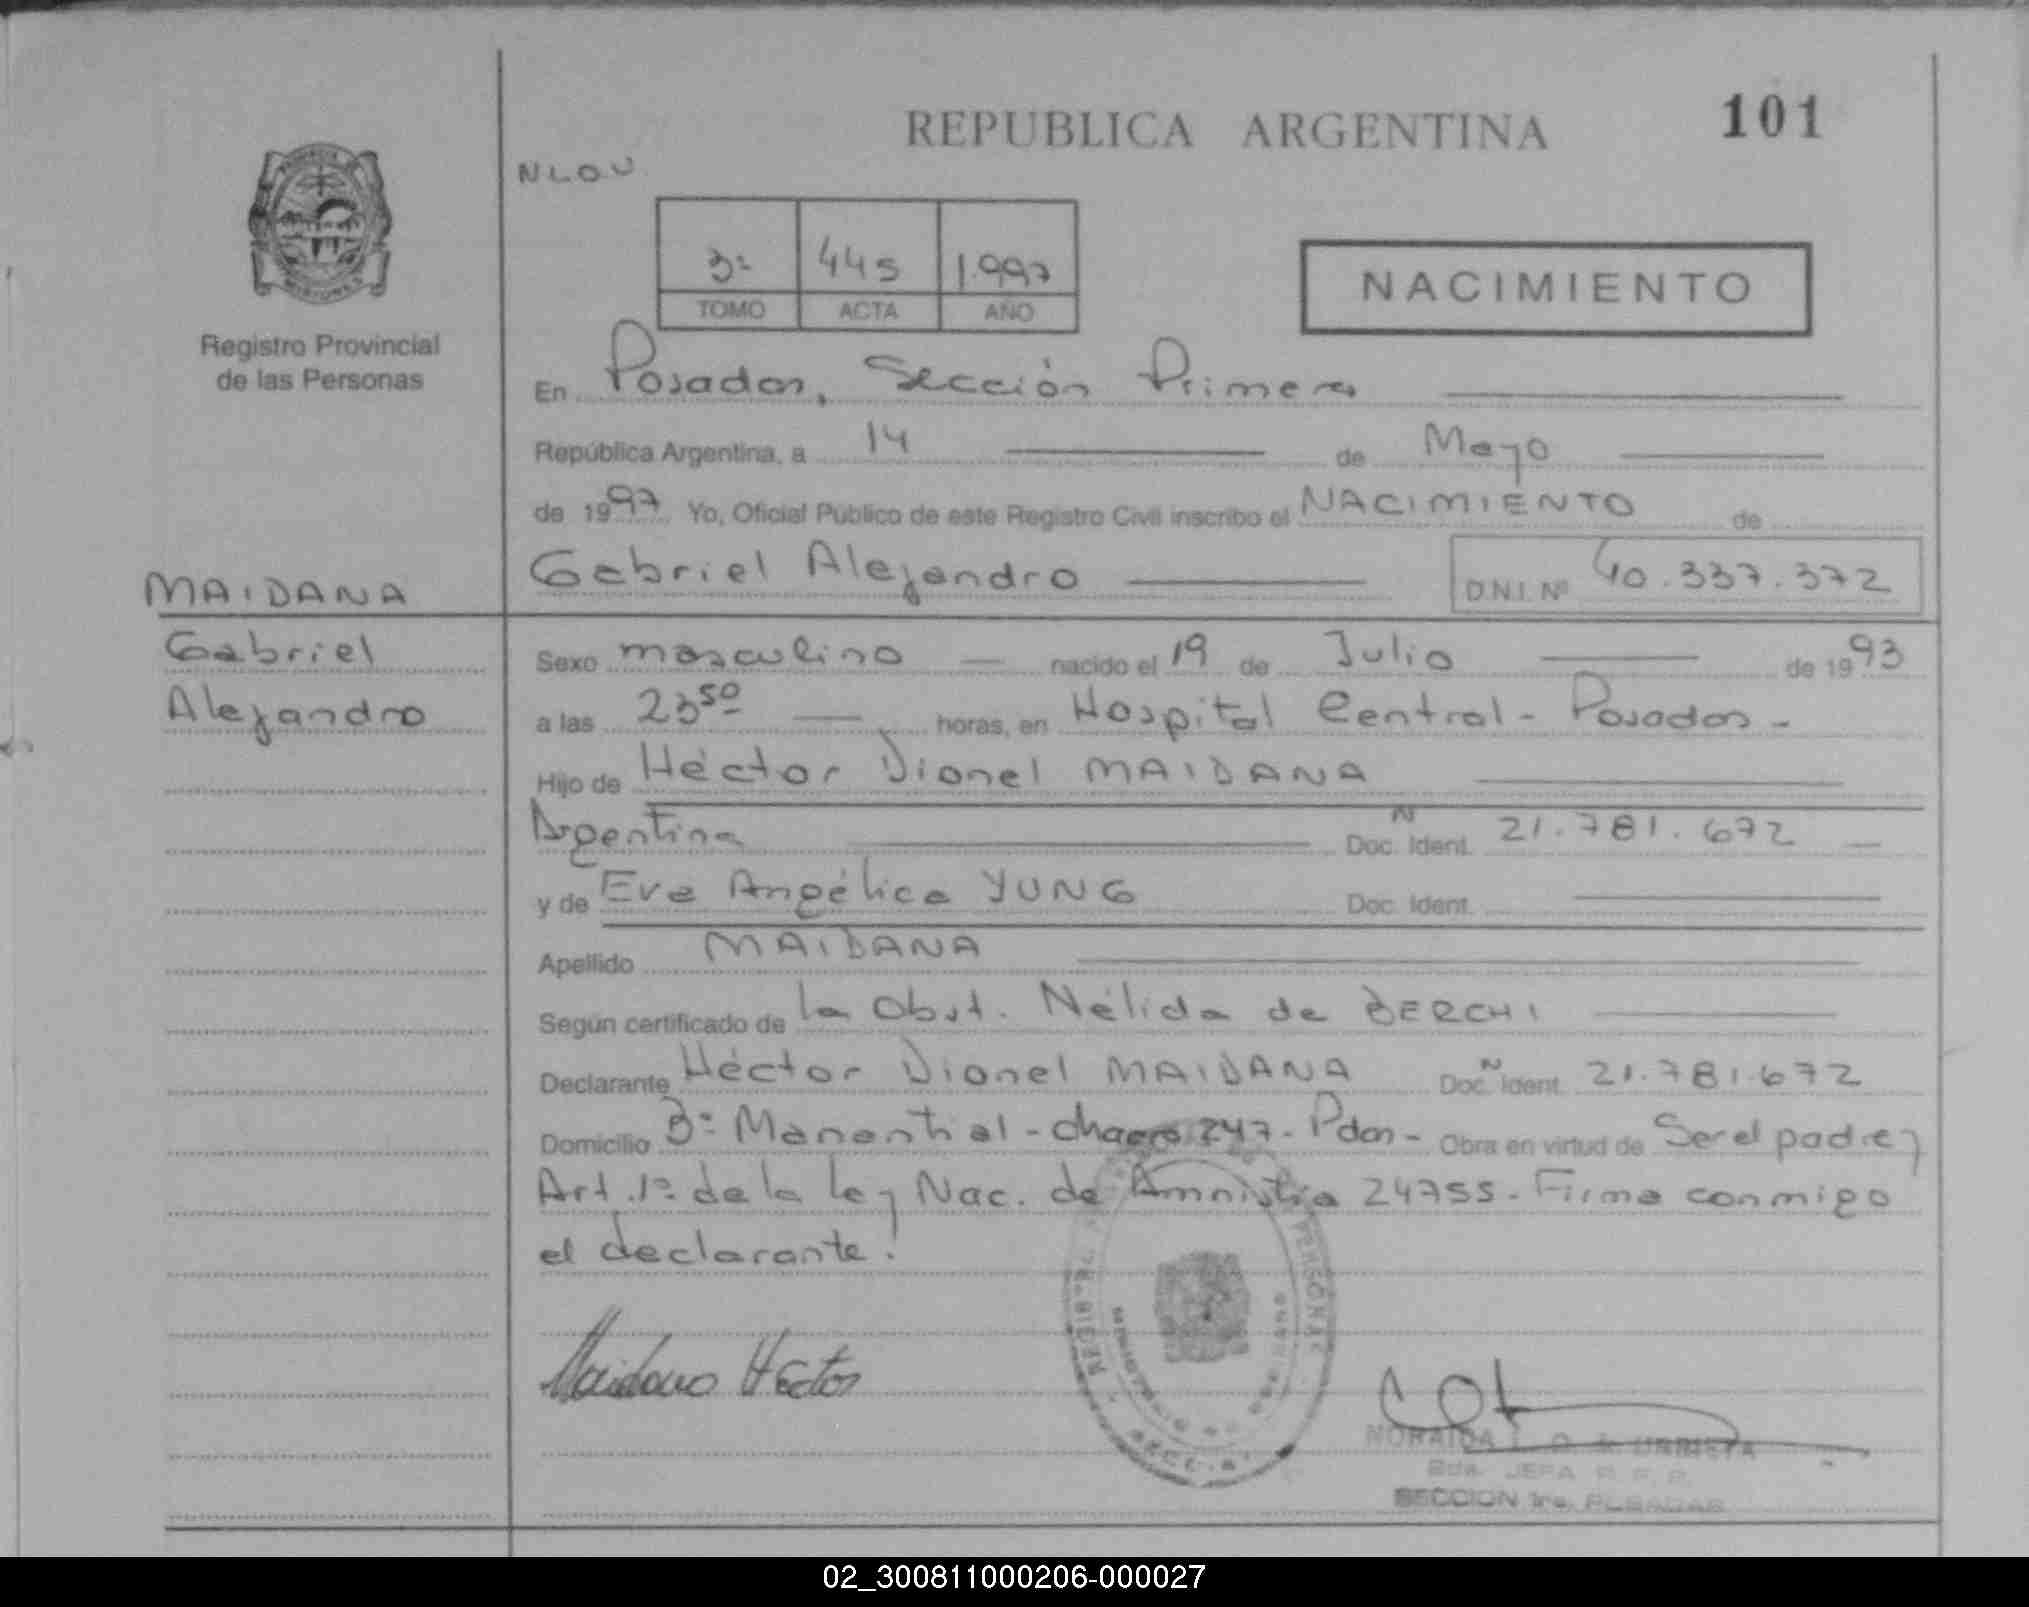 REPUBLICA ARGENTINA
101
N L O U
3º 445 1.997
TOMO ACTA AÑO
NACIMIENTO
MISIONES
Registro Provincial
de las Personas
En Posadas, Sección Primera
República Argentina, a 14 de Mayo
de 1997 Yo, Oficial Público de este Registro Civil inscribo el NACIMIENTO de
Gabriel Alejandro D.N.I. Nº 40.337.372
MAIDANA
Gabriel
Alejandro
Sexo masculino nacido el 19 de Julio de 1993
a las 23⁵⁰ horas, en Hospital Central - Posadas -
Hijo de Héctor Dionel MAIDANA
Argentina Doc. Ident. N 21.781.672
y de Eva Angélica YUNG Doc. Ident.
Apellido MAIDANA
Según certificado de la Obst. Nélida de BERCHI
Declarante Héctor Dionel MAIDANA Doc. Ident. N 21.781.672
Domicilio Bº Manantial - chacra 247 - Pdas - Obra en virtud de Ser el padre y
Art. 1º de la Ley Nac. de Amnistía 24755 - Firma conmigo
el declarante.
Maidana Héctor
NORAIDA URRIETA
JEFA R. P. P.
SECCION 1ra. POSADAS
02_300811000206-000027